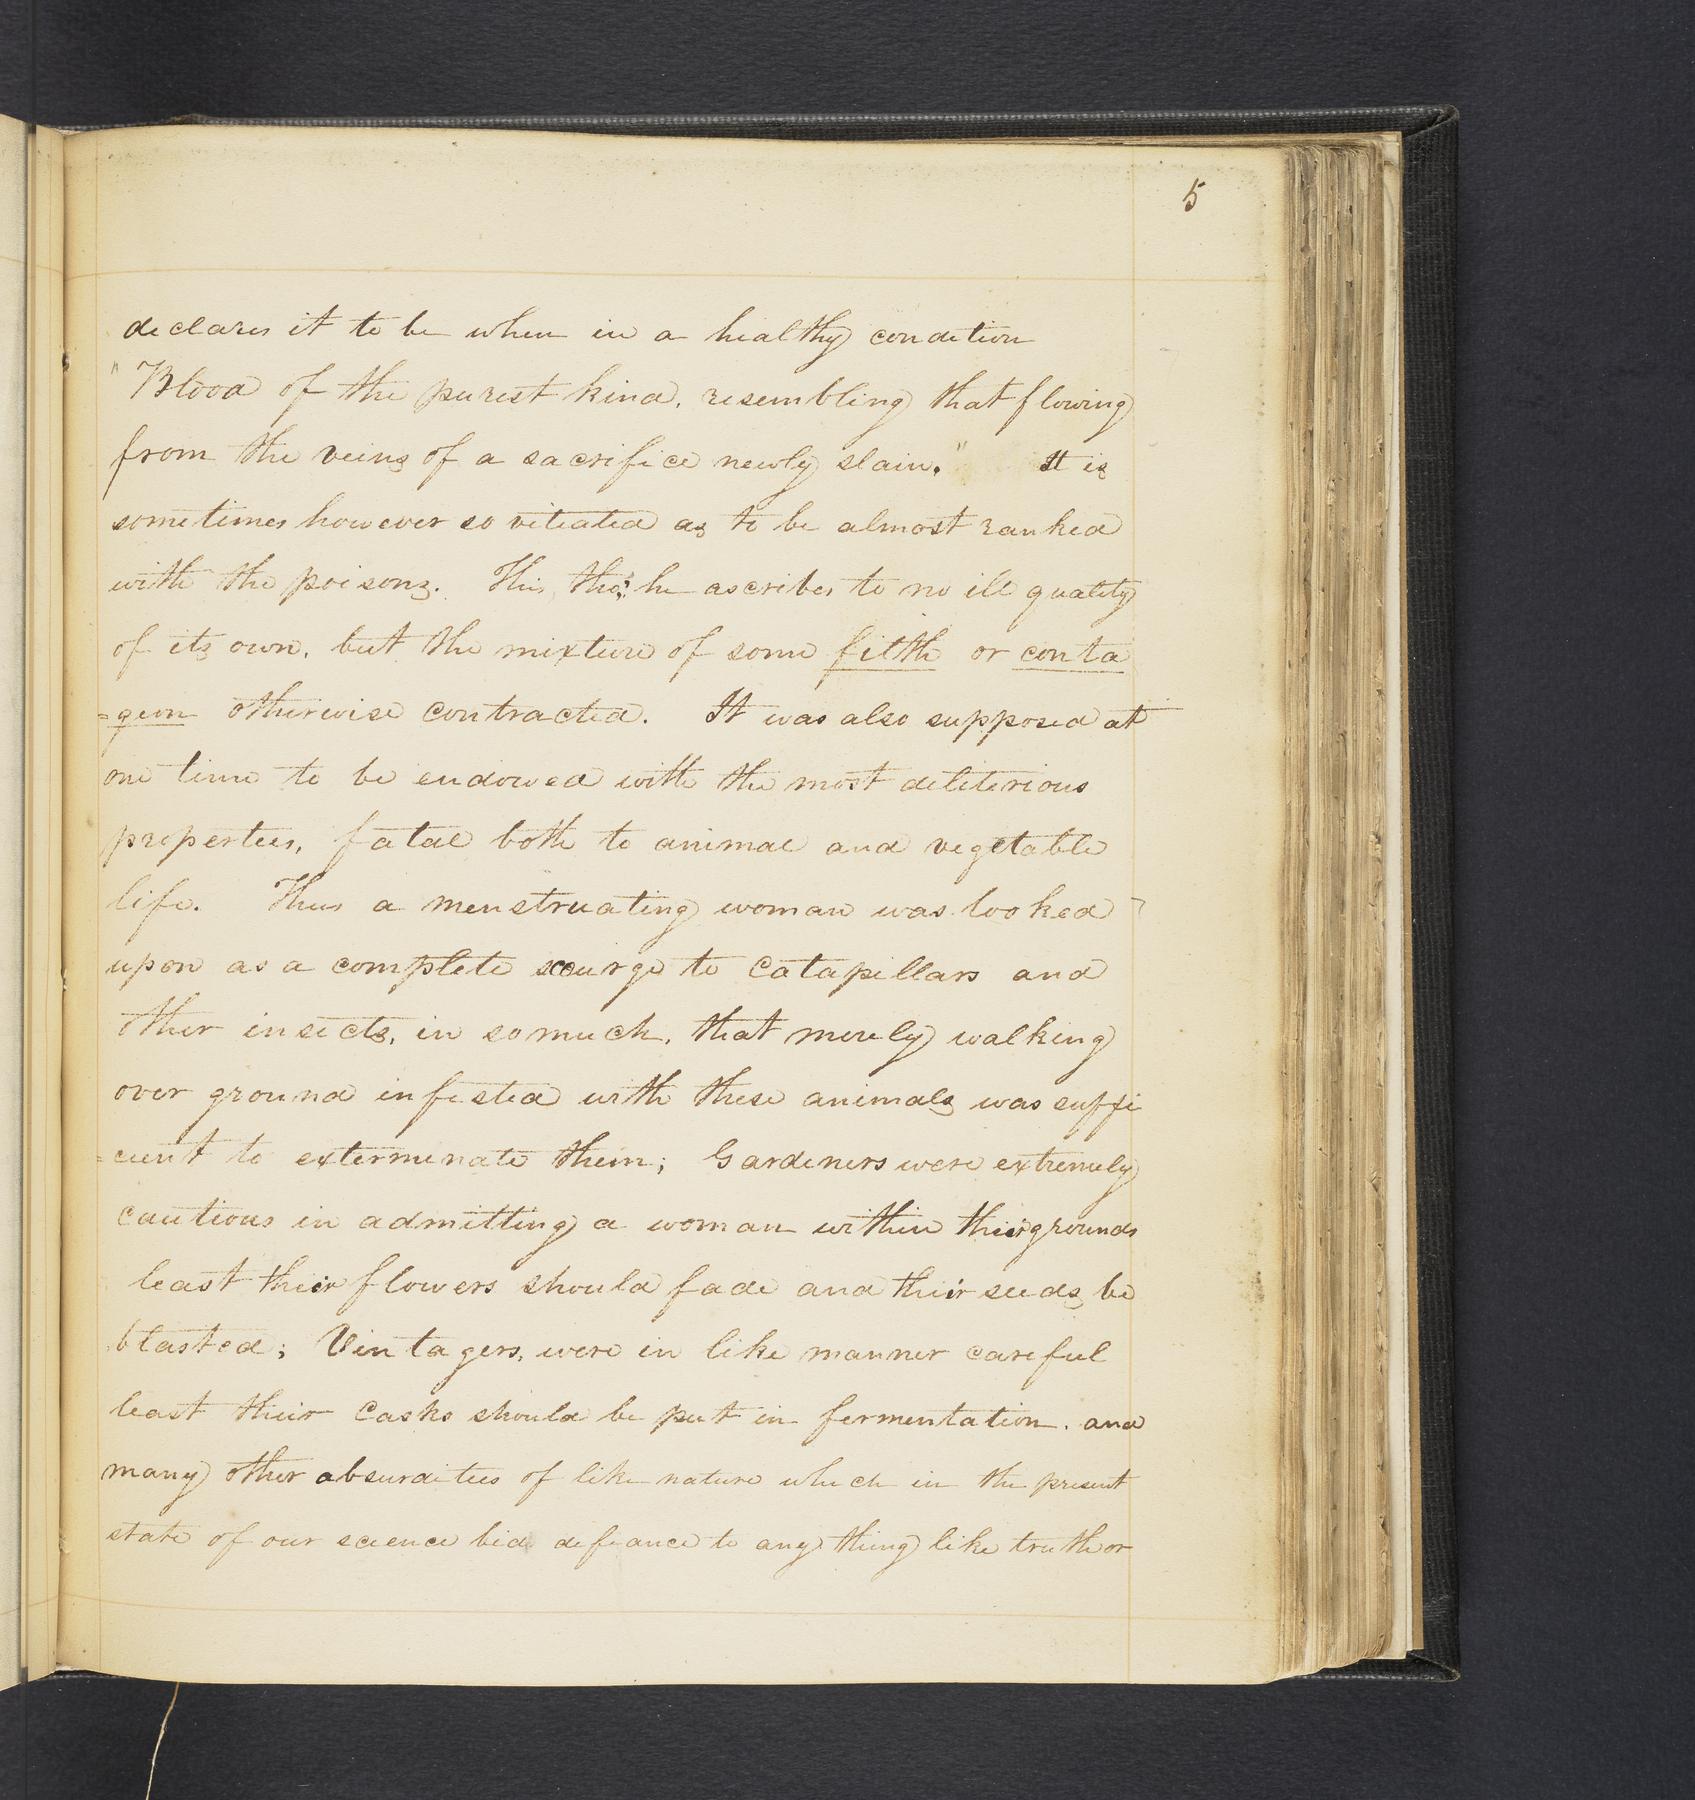 5
declares it to be when in a healthy condition
"Blood of the purest kind, resembling that flowing
from the veins of a sacrifice newly slain." It is
sometimes however so vitiated as to be almost ranked
with the poisons. This, tho', he ascribes to no ill quality
of its own, but the mixture of some filth or conta
=geon otherwise contracted. It was also supposed at
one time to be endowed with the most deliterious
properties, fatal both to animal and vegetable
life. Thus a menstruating woman was looked
upon as a complete scourge to Catapillars and
other insects, in so much, that merely walking
over ground infested with these animals was suffi
=cient to exterminate them; Gardeners were extremely
cautious in admitting a woman within their grounds
least their flowers should fade and their seeds be
blasted; Vintagers, were in like manner careful
least their Casks should be put in fermentation. and
many other absurdities of like nature which in the present
state of our science bids defiance to any thing like truth or